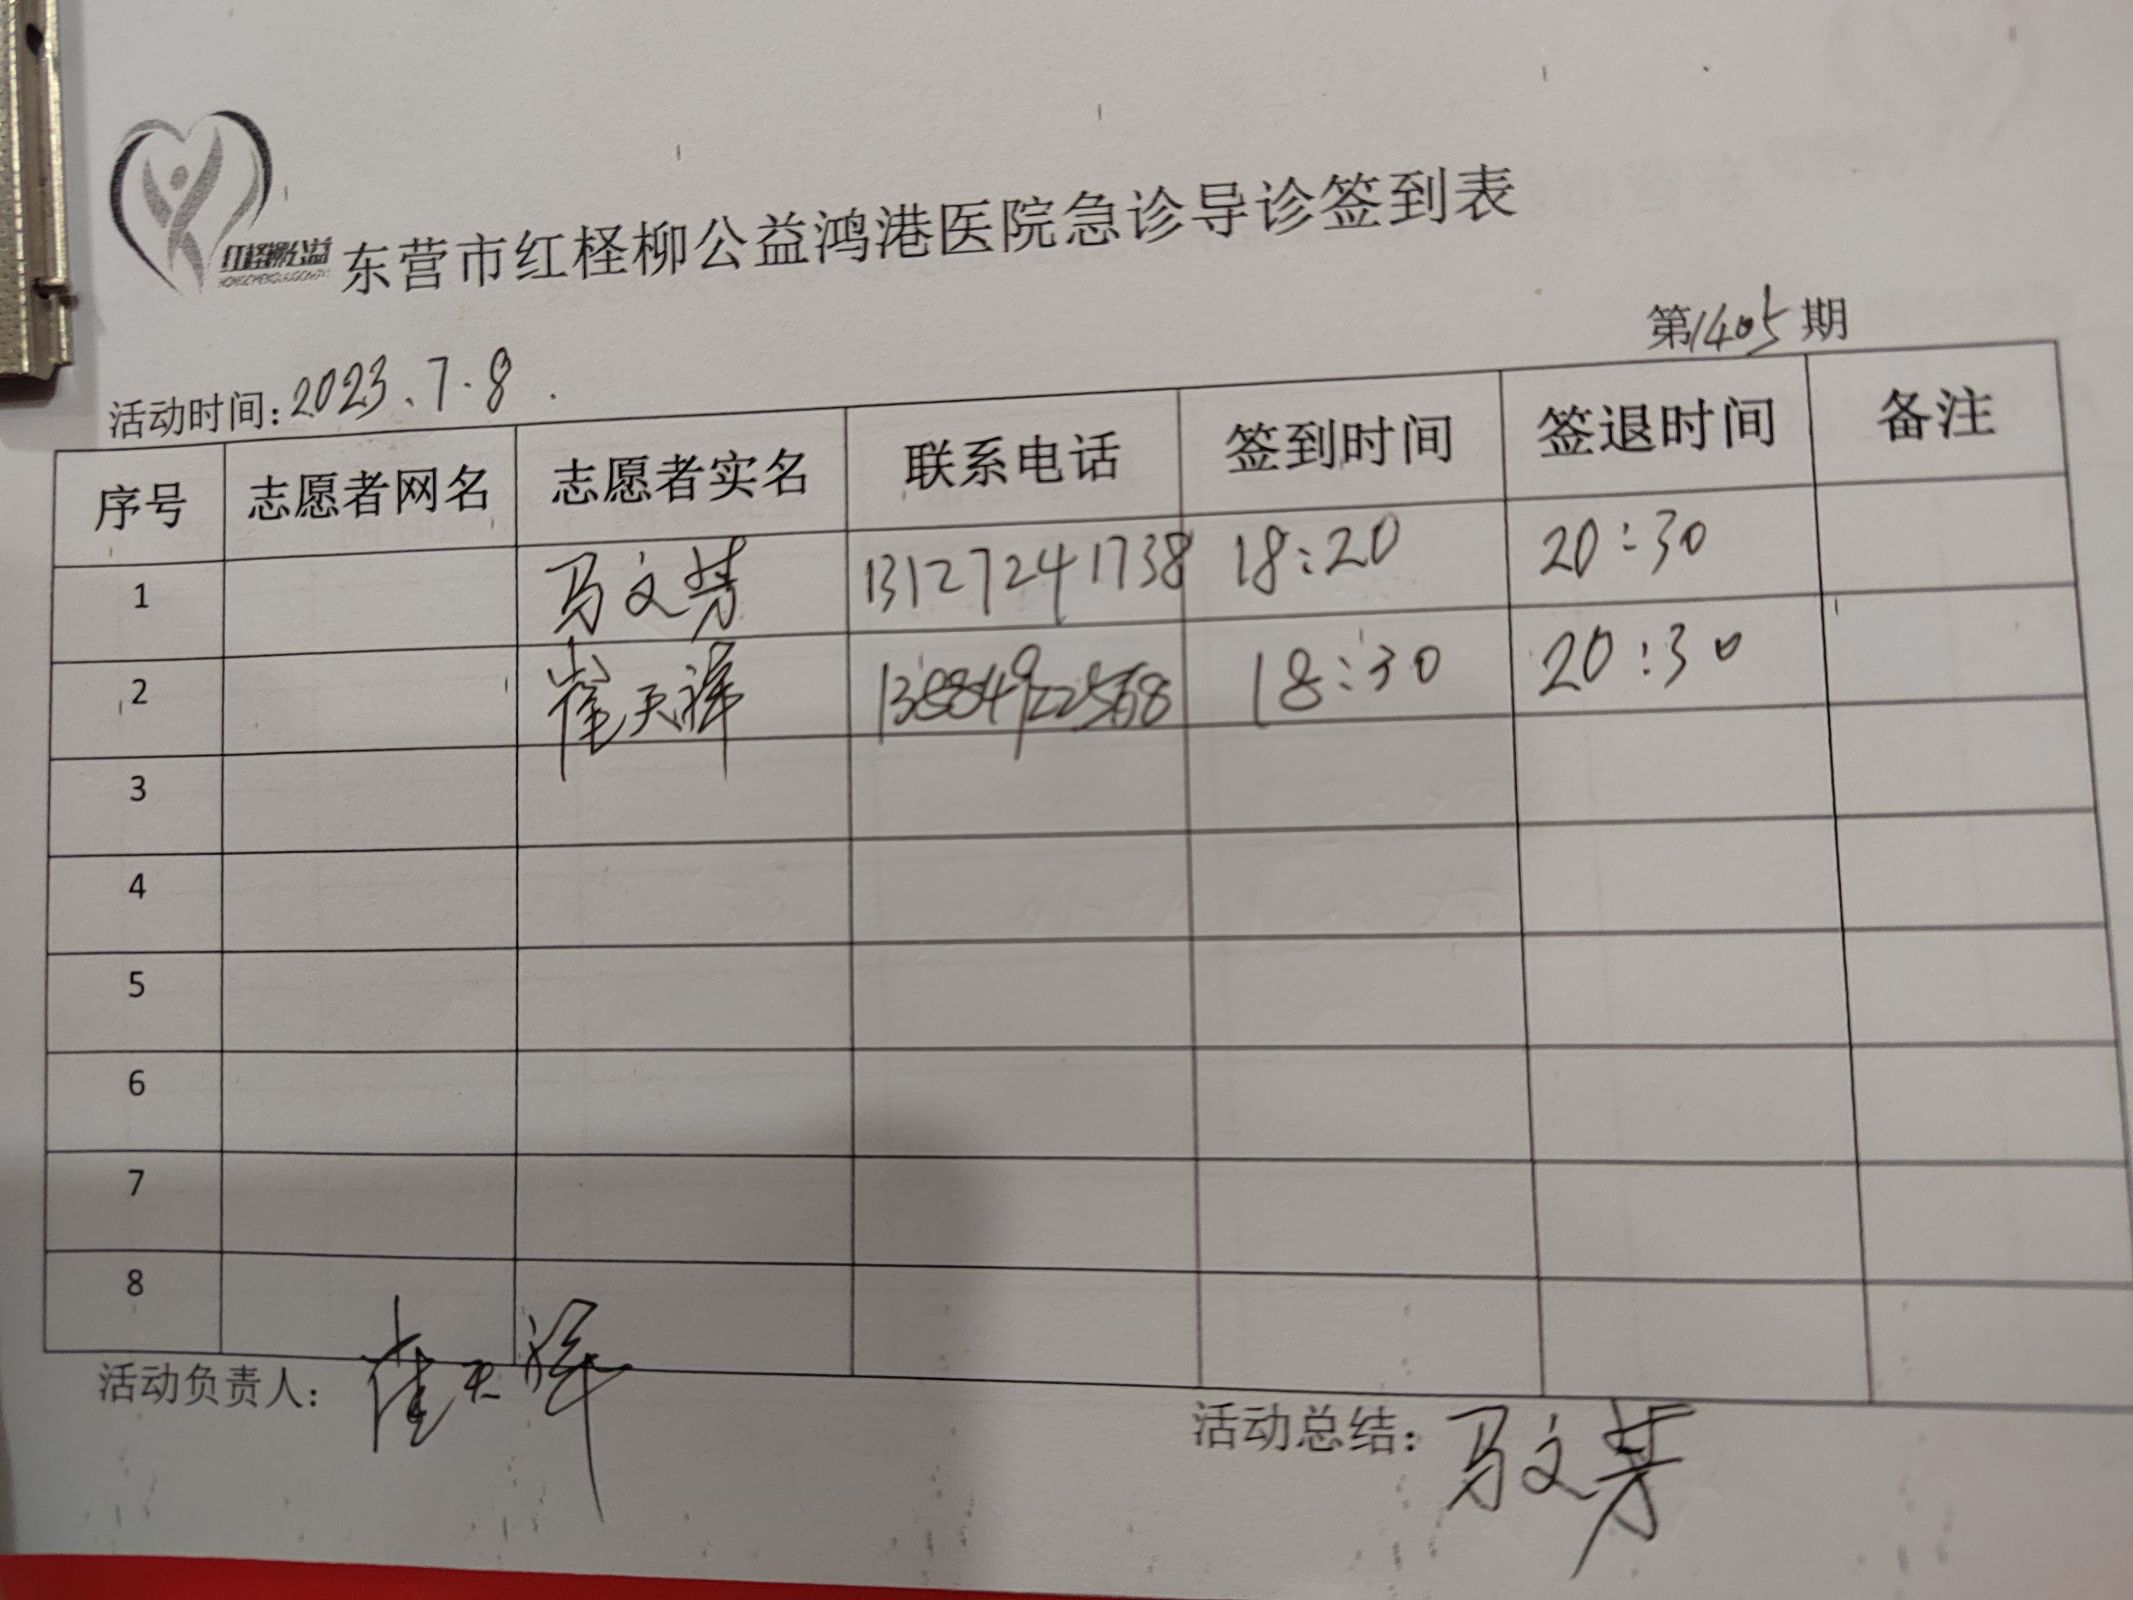 红柽柳公益
东营市红柽柳公益鸿港医院急诊导诊签到表
第1405期
活动时间:2023.7.8.
序号 志愿者网名 志愿者实名 联系电话 签到时间 签退时间 备注
1 马文芳 13127241738 18:20 20:30
2 崔天祥 13884922568 18:30 20:30
3
4
5
6
7
8
活动负责人: 崔天祥
活动总结: 马文芳